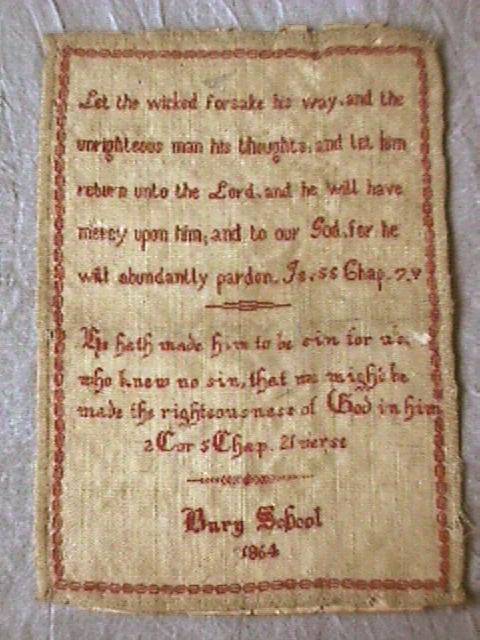 Let the wicked forsake his way, and the
unrighteous man his thoughts, and let him
return unto the Lord, and he will have
mercy upon him; and to our God, for he
will abundantly pardon. Is. 55 Chap. 7.v
He hath made him to be sin for us,
who knew no sin, that we might be
made the righteousness of God in him
2 Cor 5 Chap. 21 verse
Bury School
1864